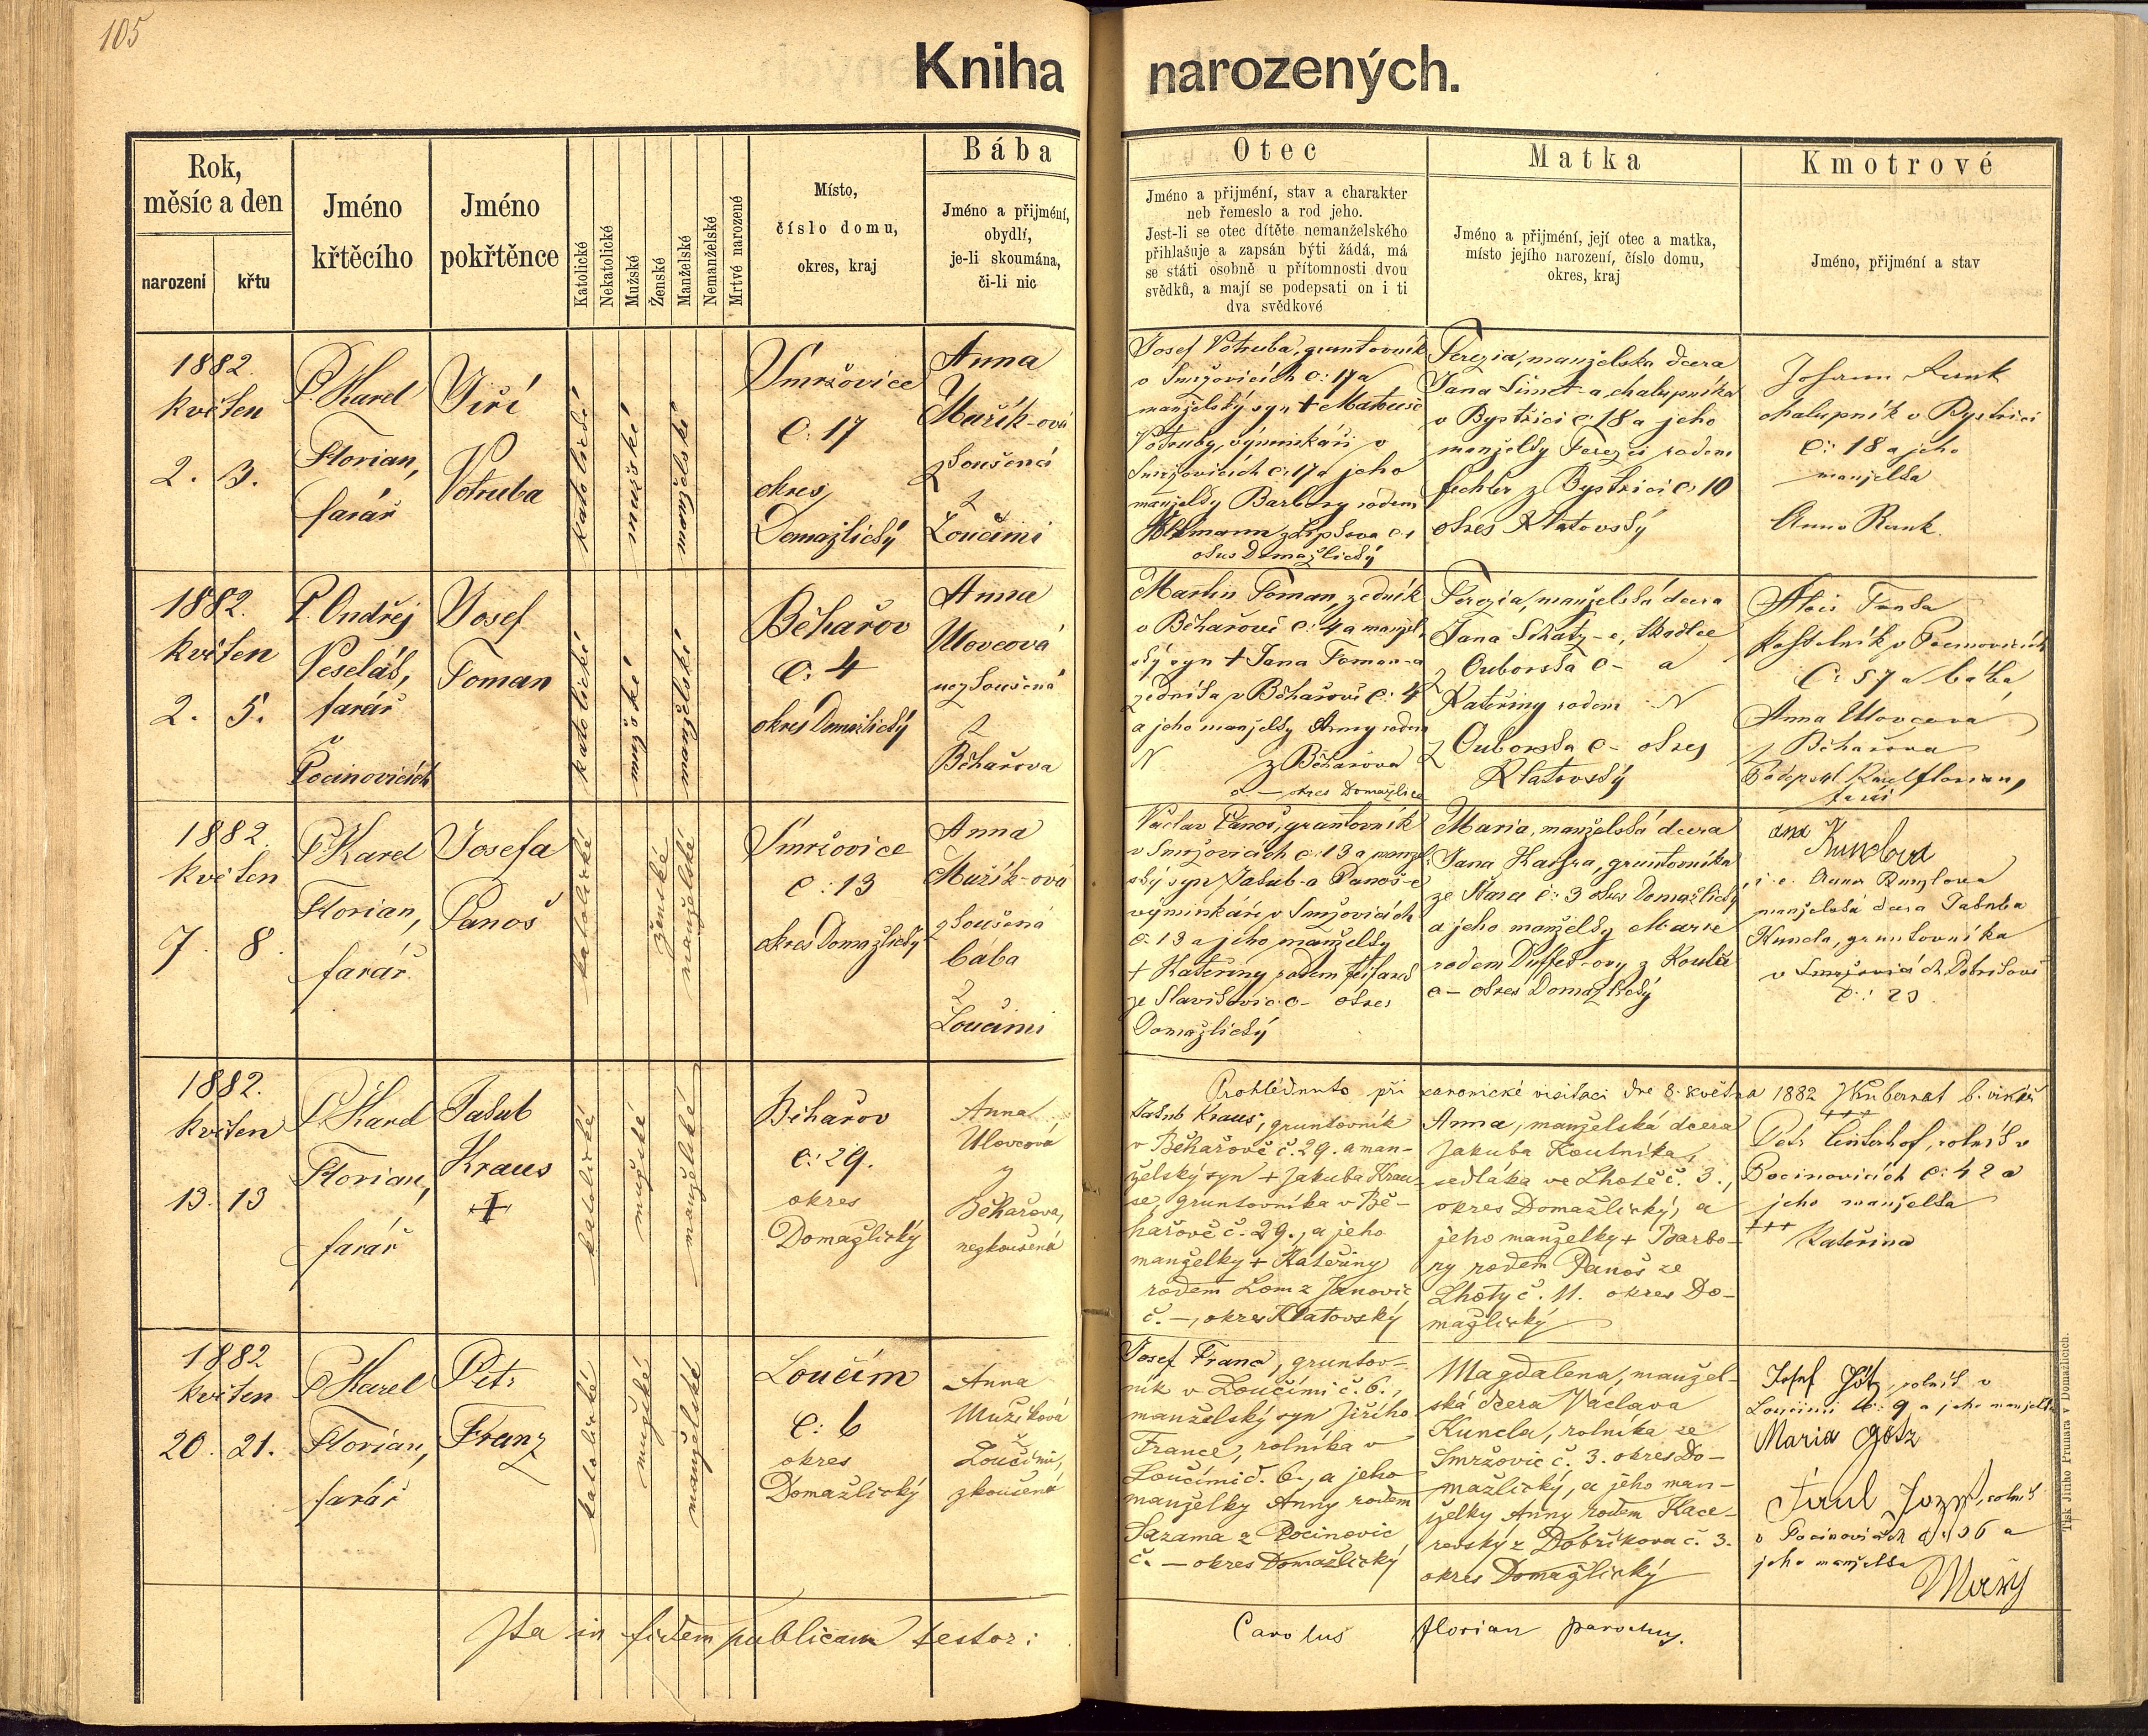 105
Kniha narozených.
Rok,
měsíc a den
narození
křtu
Jméno
křtěcího
Jméno
pokřtěnce
Katolické
Nekatolické
Mužské
Ženské
Manželské
Nemanželské
Mrtvé narozené
Místo,
číslo domu,
okres, kraj
Bába
Jméno a přijméní,
obydlí,
je-li skoumána,
či-li nic
Otec
Jméno a přijmení, stav a charakter
neb řemeslo a rod jeho.
Jest-li se otec dítěte nemanželského
přihlašuje a zapsán býti žádá, má
se státi osobně u přítomnosti dvou
svědků, a mají se podepsati on i ti
dva svědkové
Matka
Jméno a přijmení, její otec a matka,
místo jejího narození, číslo domu,
okres, kraj
Kmotrové
Jméno, přijmení a stav
1882.
květen
2. 3.
P. Karel
Florian,
farář
Jiří
Votruba
katolické
mužské
manželské
Smržovice
č: 17
okres
Domažlický
Anna
Mužík-ová
zkoušená
z
Loučimi
Josef Votruba, gruntovník
v Smržovicích č: 17 a
manželský syn + Matouše
Votruby, výminkáři v
Smržovicích č: 17 a jeho
manželky Barbory rodem
z
okres Domažlický
Terezia, manželska dcera
Jana Simet-a chalupníka
v Bystřici č 18 a jeho
manželky Terezii rodem
Fechter z Bystřici č: 10
okres Klatovský
Johann
chalupník v Bystřici
č: 18 a jeho
manželka
Anna Rank.
1882.
květen
2. 5.
P. Ondřej
Veselák,
farář
v
Pocinovicích
Josef
Toman
katolické
mužské
manželské
Běhařov
č: 4
okres Domažlický
Anna
Ulovcová
nezkoušená
z
Běhařova
Martin Toman, zedník
v Běhařově č: 4 a manžel
ský syn + Jana Toman-a
zedníka v Běhařově č: 4
a jeho manželky Anny rodem
N z Běhařova
č — okres Domažlice
Terezia, manželská dcera
Jana Schatz-e, tkadlce
z Ouborska č - a
Kateřiny rodem N
z Ouborska č- okres
Klatovský
Alois
kostelník v Pocinovicích
č: 57 a bába
Anna Ulovcová
z Běhařova
Podepsal Karel Florian,
farář
1882.
květen
7. 8.
P. Karel
Florian,
farář.
Josefa
Panoš
katolické
ženské
manželské
Smržovice
č: 13
okres Domažlický
Anna
Mužík-ová
zkoušená
bába
z
Loučimi
Václav Panoš, gruntovník
v Smržovicích č: 13 a manžel
ský syn Jakub-a Panoš-e
výminkáře v Smržovicích
č: 13 a jeho manželky
+ Kateřiny rodem
ze Slavikovic č- okres
Domažlický
Maria, manželská dcera
Jana, gruntovníka
ze Stara č: 3 okres Domažlický
a jeho manželky Marie
rodem z
č- okres Domažlický
Kunclova
i. e. Anna Kunzlova
manželská dcera Jakuba
Kuncla, gruntovníka
v Smržovicích
Prohlédnuto při kanonické visitaci dne 8. května 1882 b. vikář
1882.
květen
13. 13
P. Karel
Florian,
farář
Jakub
Kraus
+
katolické
mužské
manželské
Běhařov
č: 29.
okres
Domažlický
Anna
Ulovcová
z
Běhařova,
nezkoušená
Jakub Kraus, gruntovník
v Běhařově č. 29. a man-
želský syn + Jakuba Krau-
se, gruntovníka v Bě-
hařově č. 29., a jeho
manželky + Kateřiny
rodem Lom z Janovic
č. —, okres Klatovský
Anna, manželská dcera
Jakuba Koutníka,
sedláka ve Lhotě č. 3.,
okres Domažlický, a
jeho manželky + Barbo-
ry rodem Panoš ze
Lhoty č. 11. okres Do-
mažlický
+++
Petr, rolník v
Pocinovicích č: 42 a
jeho manželka
+++ Kateřina
1882
květen
20. 21.
P. Karel
Florian,
farář
Petr
Franz
katolické
mužské
manželské
Loučím
č: 6
okres
Domažlický
Anna
Mužíková
z
Loučimi,
zkoušená
Josef Franc, gruntov-
ník v Loučími č. 6.,
manželský syn Jiřího
France, rolníka v
Loučími č. 6., a jeho
manželky Anny rodem
Sazama z Pocinovic
č. — okres Domažlický
Magdalena, manžel-
ská dcera Václava
Kuncla, rolníka ze
Smržovic č. 3. okres Do-
mažlický, a jeho man-
želky Anny rodem Kace-
rovský z Dobříkova č. 3.
okres Domažlický
Josef Götz, rolník v
Loučimi č: 9 a jeho manželka
Maria Götz
Josef, rolník
v Pocinovicích a
jeho manželka
Ita in fidem publicam testor: Carolus Florian parochus.
Tisk Jiřího Prunara v Domažlicích.